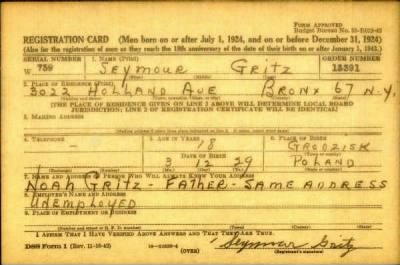 FORM APPROVED
REGISTRATION CARD (Men born on or after July 1, 1924, and on or before December 31, 1924)
(Also for the registration of men as they reach the 18th anniversary of the date of their birth on or after January 1, 1943.)
SERIAL NUMBER 1. NAME (Print) ORDER NUMBER
W 739 SEYMOUR GRITZ 13391
2. PLACE OF RESIDENCE (Print)
3022 HOLLAND AVE BRONX 67 N.Y.
[THE PLACE OF RESIDENCE GIVEN ON LINE 2 ABOVE WILL DETERMINE LOCAL BOARD
JURISDICTION; LINE 2 OF REGISTRATION CERTIFICATE WILL BE IDENTICAL]
3. MAILING ADDRESS
4. TELEPHONE 5. AGE IN YEARS 6. PLACE OF BIRTH
— 18 GRODZISK
DATE OF BIRTH
3 12 29 POLAND
7. NAME AND ADDRESS OF PERSON WHO WILL ALWAYS KNOW YOUR ADDRESS
NOAH GRITZ - FATHER - SAME ADDRESS
8. EMPLOYER'S NAME AND ADDRESS
UNEMPLOYED
9. PLACE OF EMPLOYMENT OR BUSINESS
I AFFIRM THAT I HAVE VERIFIED ABOVE ANSWERS AND THAT THEY ARE TRUE.
DSS Form 1 (Rev. 11-16-42) (OVER) Seymour Gritz
(Registrant's signature)